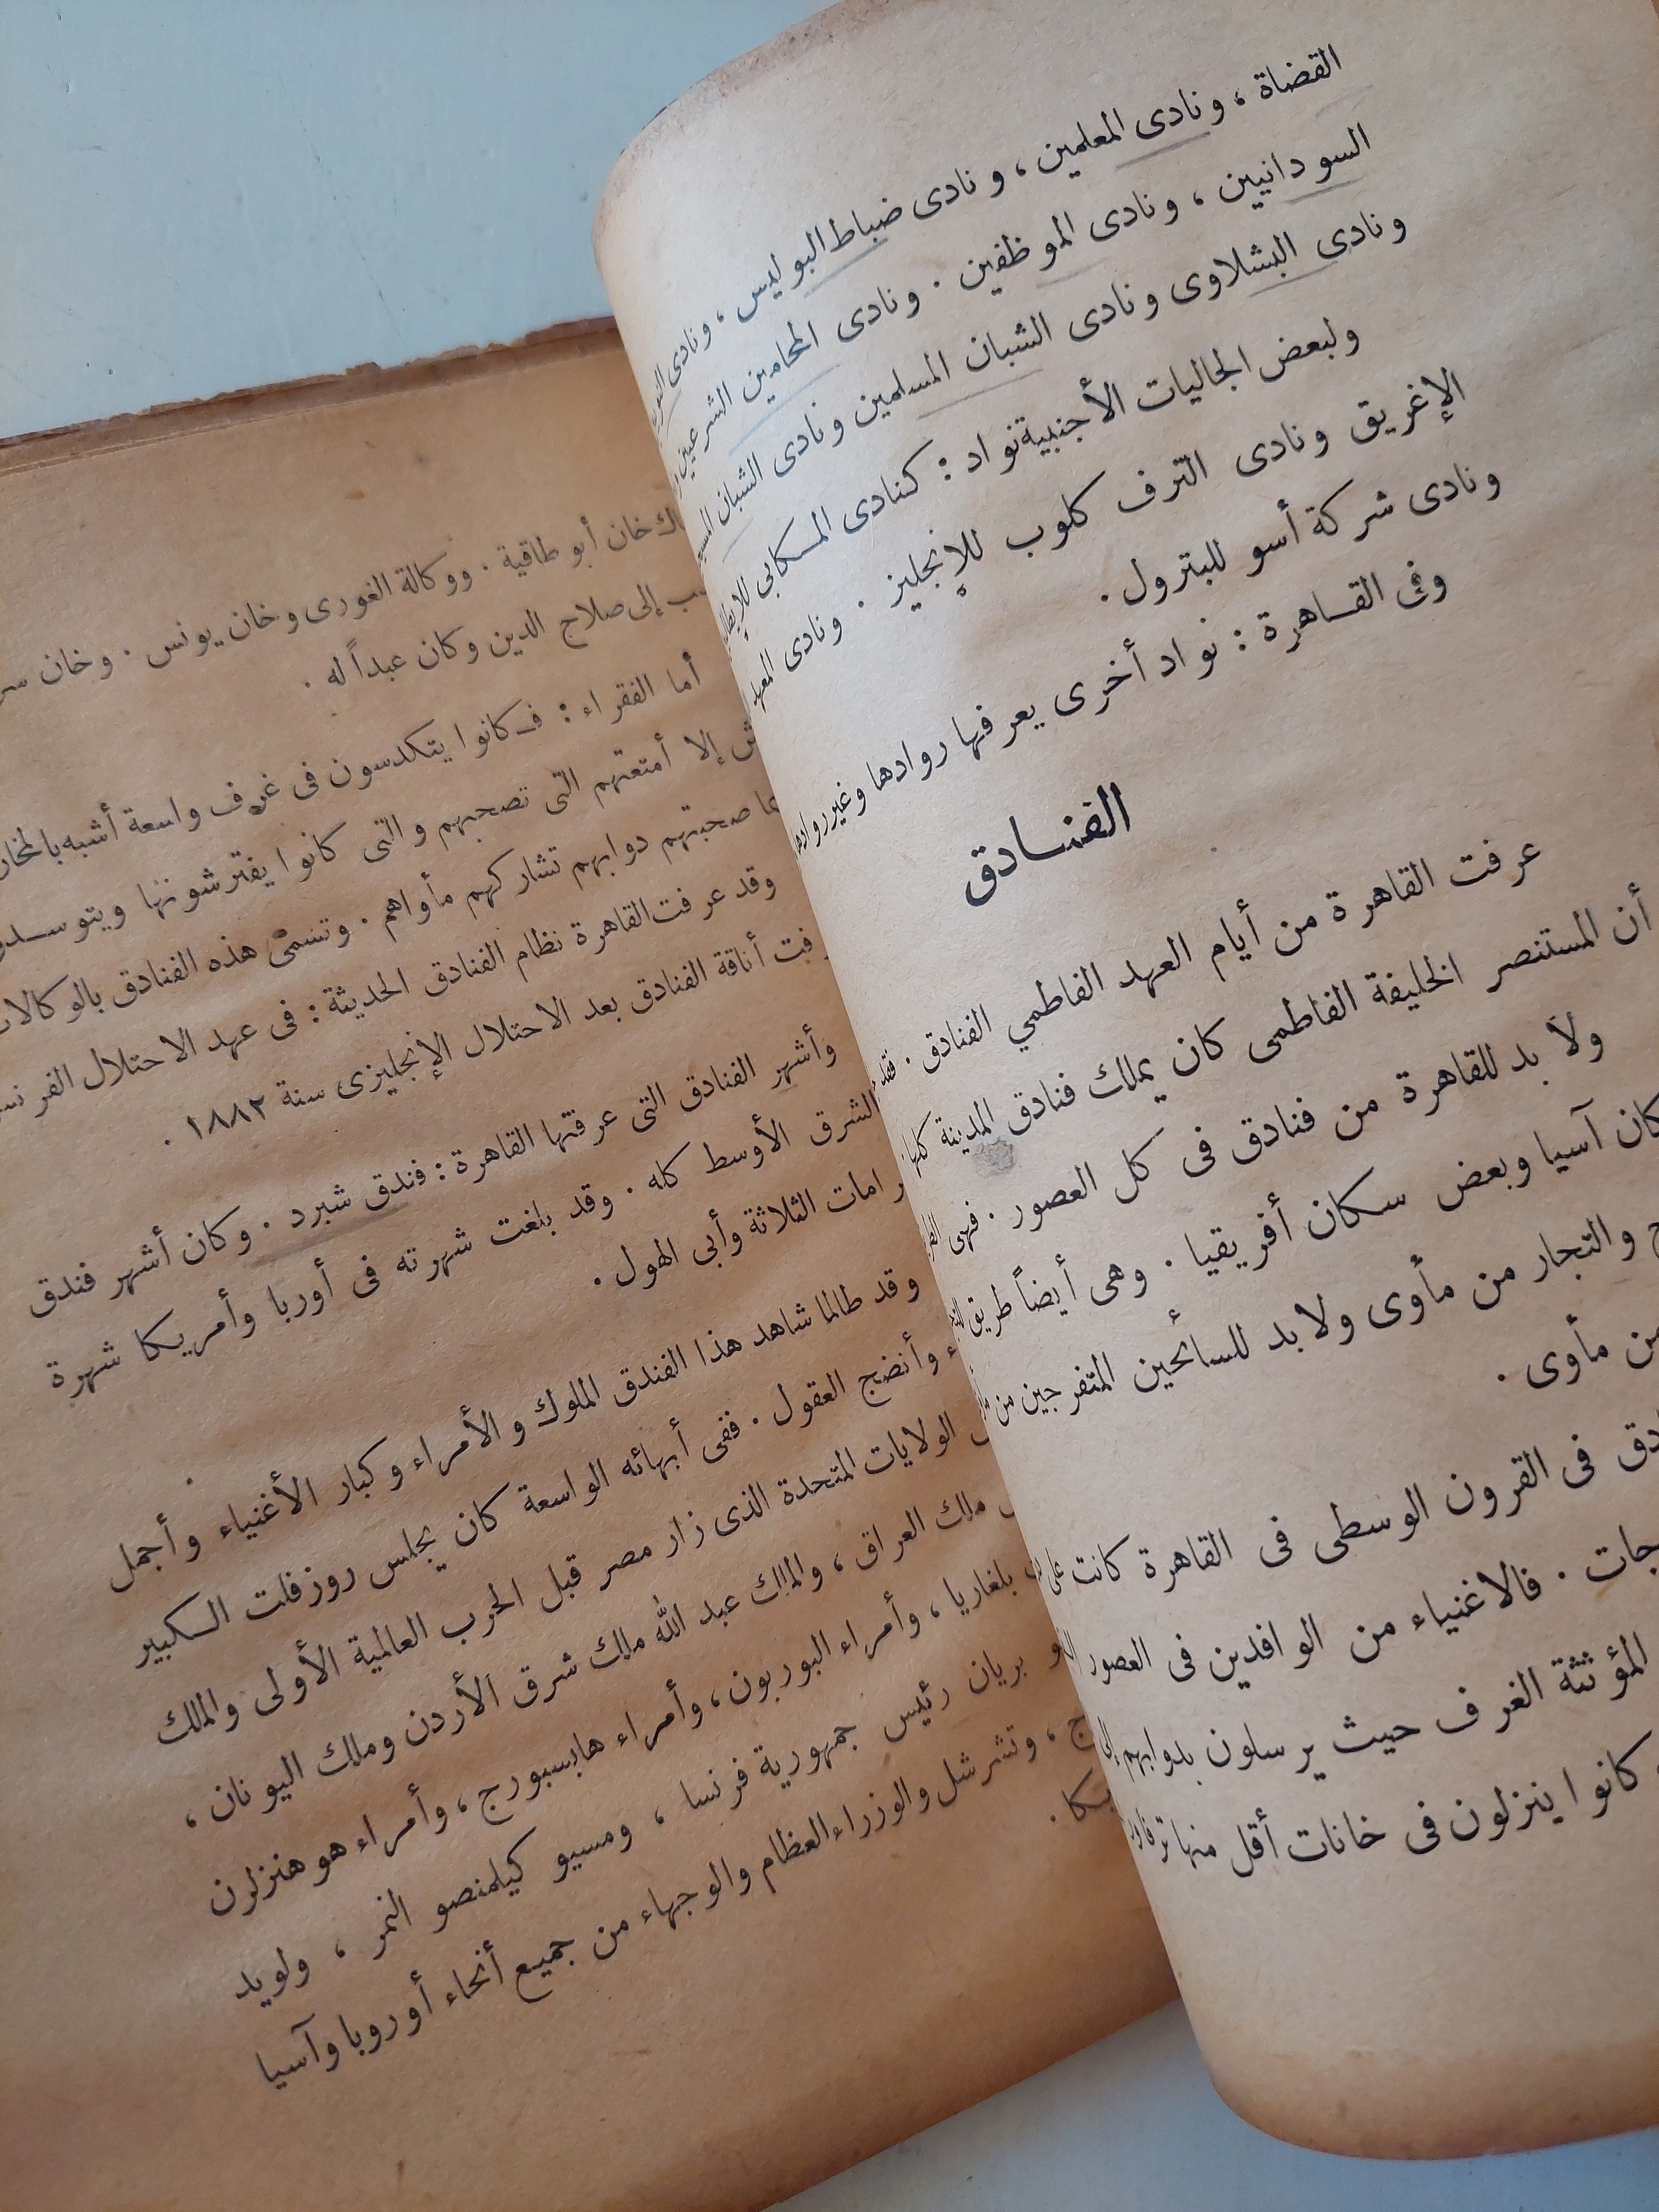 القضاة ، ونادى المعلمين ، ونادى ضباط البوليس ، ونادى
السودانيين ، ونادى الموظفين . ونادى المحامين الشرعيين
ونادى البشلاوى ونادى الشبان المسلمين ونادى الشبان
ولبعض الجاليات الأجنبية نواد : كنادى المسكابى
الإغريق ونادى الترف كلوب للإنجليز . ونادى المعهد
ونادى شركة أسو للبترول .
وفى القاهرة : نواد أخرى يعرفها روادها وغير روادها
الفنادق
عرفت القاهرة من أيام العهد الفاطمي الفنادق . فقد
أن المستنصر الخليفة الفاطمى كان يملك فنادق المدينة كلها
ولا بد للقاهرة من فنادق فى كل العصور . فهى
آسيا وبعض سكان أفريقيا . وهى أيضاً طريق
والتجار من مأوى ولابد للسائحين المتفرجين من
مأوى .
فى القرون الوسطى فى القاهرة كانت على
فالاغنياء من الوافدين فى العصور
المؤثثة الغرف حيث يرسلون بدوابهم إلى
كانوا ينزلون فى خانات أقل منها ترفا
خان أبو طاقية . ووكالة الغورى وخان يونس . وخان
إلى صلاح الدين وكان عبداً له .
أما الفقراء : فكانوا يتكدسون فى غرف واسعة أشبه
إلا أمتعتهم التى تصحبهم والتى كانوا يفترشونها
صحبتهم دوابهم تشاركهم مأواهم . وتسمى هذه الفنادق بالوكالات
وقد عرفت القاهرة نظام الفنادق الحديثة : فى عهد الاحتلال
أناقة الفنادق بعد الاحتلال الإنجليزى سنة ١٨٨٢ .
وأشهر الفنادق التى عرفتها القاهرة : فندق شبرد . وكان أشهر فندق
الشرق الأوسط كله . وقد بلغت شهرته فى أوربا وأمريكا شهرة
الثلاثة وأبى الهول .
وقد طالما شاهد هذا الفندق الملوك والأمراء وكبار الأغنياء وأجمل
وأنضج العقول . ففى أبهائه الواسعة كان يجلس روزفلت الكبير
الولايات المتحدة الذى زار مصر قبل الحرب العالمية الأولى والملك
ملك العراق ، والملك عبد الله ملك شرق الأردن وملك اليونان ،
بلغاريا ، وأمراء البوربون ، وأمراء هابسبورج ، وأمراء هوهنزلرن
بريان رئيس جمهورية فرنسا ، ومسيو كيلمنصو النمر ، ولويد
وتشرشل والوزراء العظام والوجهاء من جميع أنحاء أوروبا وآسيا